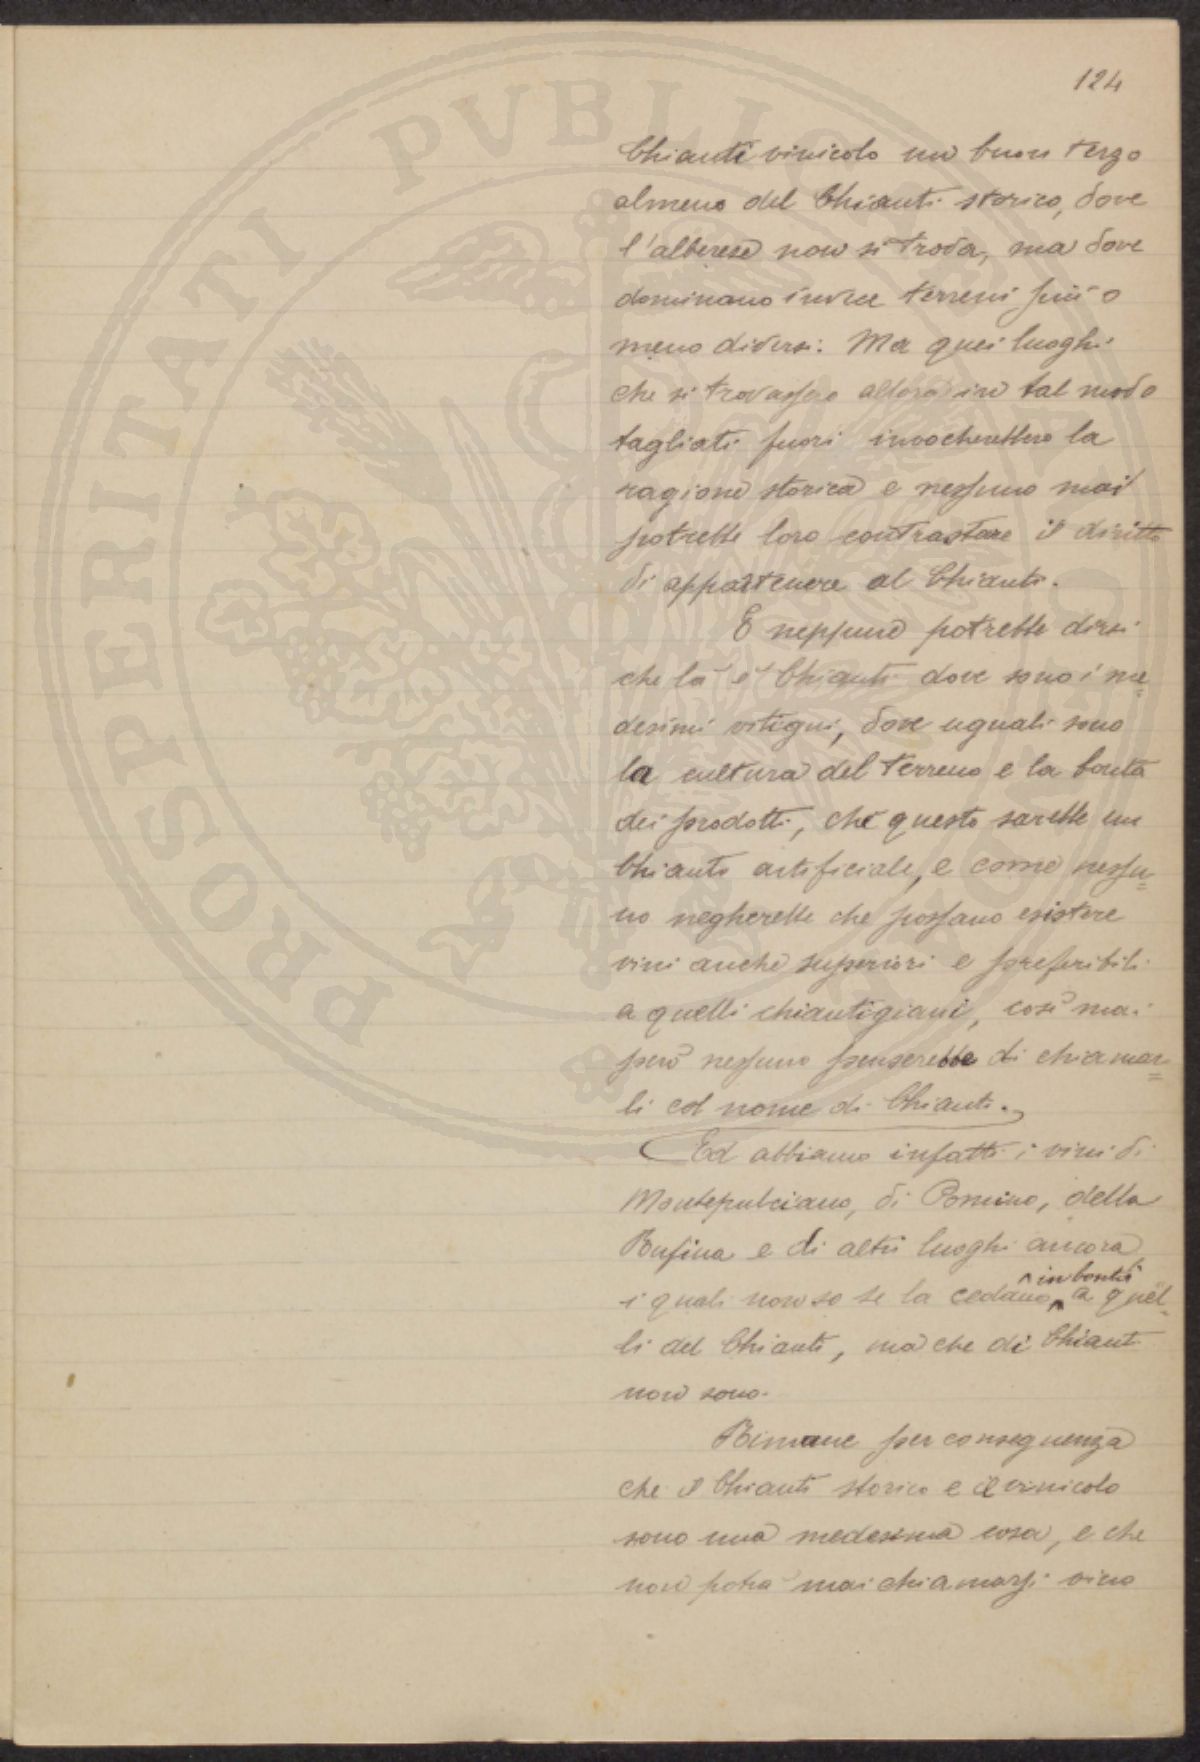 124
Chianti vinicolo un buon terzo
almeno del Chianti storico, dove
l'alberese non si trova, ma dove
dominano invece terreni più o
meno diversi. Ma quei luoghi
che si trovassero allora in tal modo
tagliati fuori invocherebbero la
ragione storica e nessuno mai
potrebbe loro contrastare il diritto
di appartenere al Chianti.
E neppure potrebbe dirsi
che là è Chianti dove sono i me=
desimi vitigni, dove uguali sono
la cultura del terreno e la bontà
dei prodotti, chè questo sarebbe un
Chianti artificiale, e come nessu=
no negherebbe che possano esistere
vini anche superiori e preferibili
a quelli chiantigiani, così mai
però nessuno penserebbe di chiamar=
li col nome di Chianti.
Ed abbiamo infatti i vini di
Montepulciano, di Pomino, della
Rufina e di altri luoghi ancora
i quali non so se la cedano in bontà a quel=
li del Chianti, ma che di Chianti
non sono.
Rimane per conseguenza
che il Chianti storico e il vinicolo
sono una medesima cosa, e che
non potrà mai chiamarsi vino
PROSPERITATI PVBLICAE